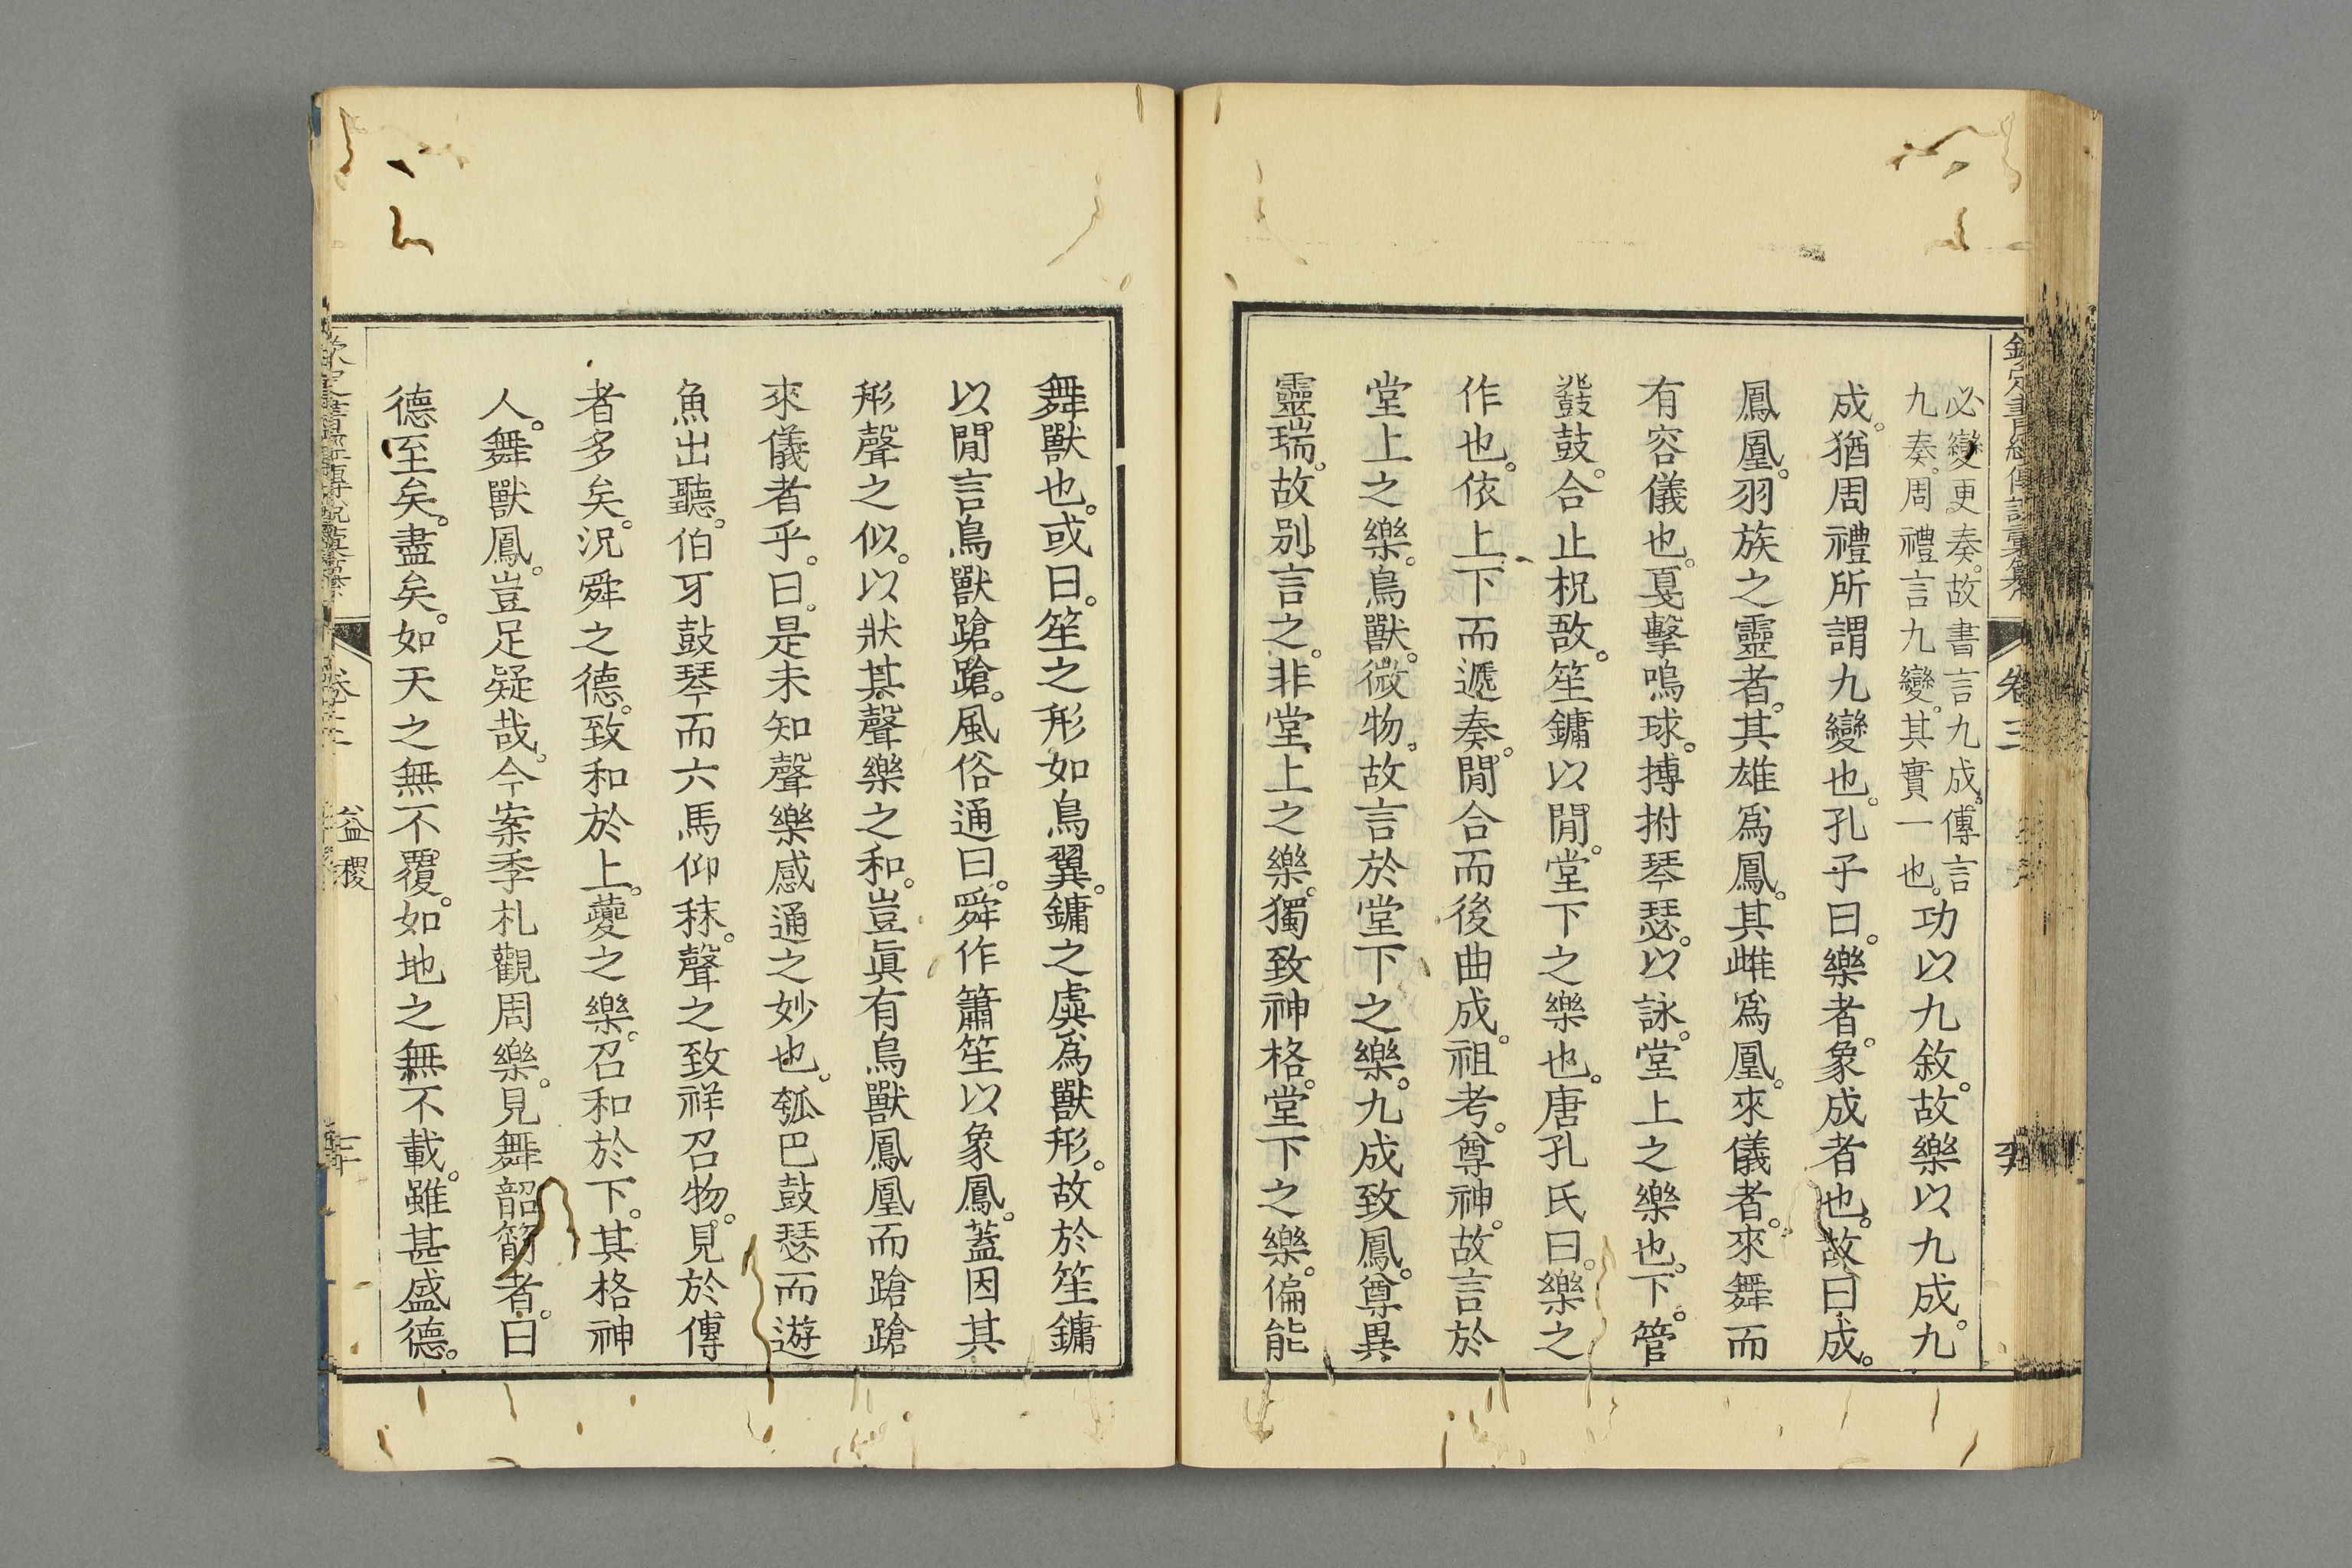 必變更奏。故書言九成。傳言
九奏。周禮言九變。其實一也。
功以九敘。故樂以九成。九
成。猶周禮所謂九變也。孔子曰。樂者。象成者也。故曰成。
鳳凰。羽族之靈者。其雄爲鳳。其雌爲凰。來儀者。來舞而
有容儀也。戛擊鳴球。搏拊琴瑟。以詠。堂上之樂也。下。管
鼗鼓。合止柷敔。笙鏞以閒。堂下之樂也。唐孔氏曰。樂之
作也。依上下而遞奏。閒合而後曲成。祖考。尊神。故言於
堂上之樂。鳥獸。微物。故言於堂下之樂。九成致鳳。尊異
靈瑞。故別言之。非堂上之樂。獨致神格。堂下之樂。偏能
卷三
舞獸也。或曰。笙之形如鳥翼。鏞之虡爲獸形。故於笙鏞
以閒言鳥獸蹌蹌。風俗通曰。舜作簫笙以象鳳。蓋因其
形聲之似。以狀其聲樂之和。豈眞有鳥獸鳳凰而蹌蹌
來儀者乎。曰。是未知聲樂感通之妙也。瓠巴鼓瑟而遊
魚出聽。伯牙鼓琴而六馬仰秣。聲之致祥召物。見於傳
者多矣。況舜之德。致和於上。夔之樂。召和於下。其格神
人。舞獸鳳。豈足疑哉。今案季札觀周樂。見舞韶箾者。曰
德至矣。盡矣。如天之無不覆。如地之無不載。雖甚盛德。
益稷